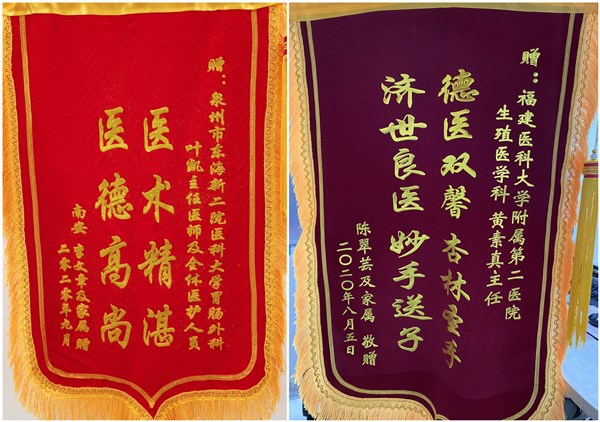 赠：泉州市东海新二院医科大学胃肠外科
叶凯主任医师及全体医护人员
医术精湛
医德高尚
南安 李文章及家属赠
二零二零年九月
赠：福建医科大学附属第二医院
生殖医学科 黄素真主任
德医双馨 杏林圣手
济世良医 妙手送子
陈翠芸及家属 敬赠
二〇二〇年八月五日